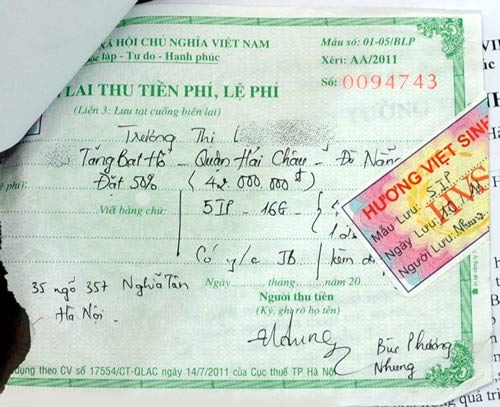 XÃ HỘI CHỦ NGHĨA VIỆT NAM
lập - Tự do - Hạnh phúc
Mẫu số: 01-05/BLP
Xêri: AA/2011
Số: 0094743
LAI THU TIỀN PHÍ, LỆ PHÍ
(Liên 3: Lưu tại cuống biên lai)
Trương Thị L
Tăng Bạt Hổ - Quận Hải Châu - Đà Nẵng
phí):
Đặt 50% (42.000.000đ
Viết bằng chữ:
5IP - 16G
Có y/c JB kèm
35 ngõ 357 Nghĩa Tân
Hà Nội.
Ngày......tháng......năm 20
Người thu tiền
(Ký, ghi rõ họ tên)
Nhung
Bùi Phương
Nhung
dụng theo CV số 17554/CT-QLAC ngày 14/7/2011 của Cục thuế TP Hà Nội
HƯƠNG VIỆT SINH
HVS
Mẫu Lưu: 5IP
Ngày Lưu:
Người Lưu: Nhung
quá trì